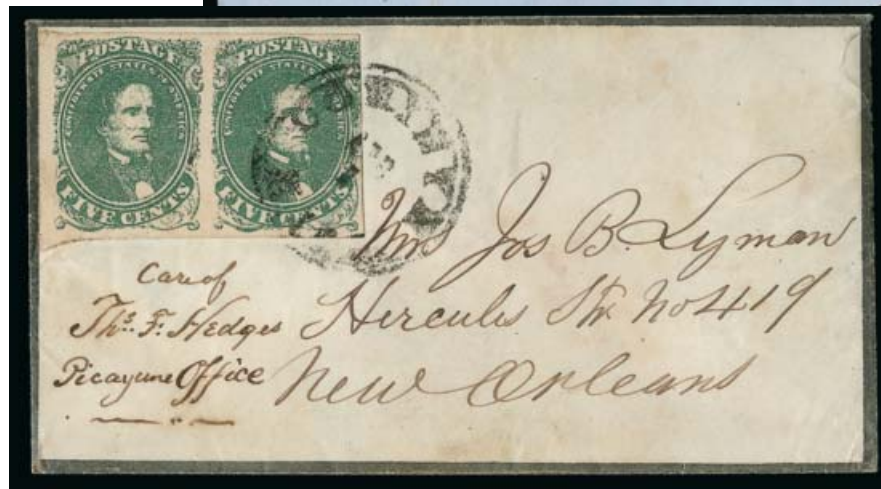 POSTAGE
CONFEDERATE STATES OF AMERICA
FIVE CENTS
POSTAGE
FIVE CENTS
Mrs Jos B. Lyman
Hercules Str. No 419
New Orleans
Care of
Thos. F. Hedges
Picayune Office